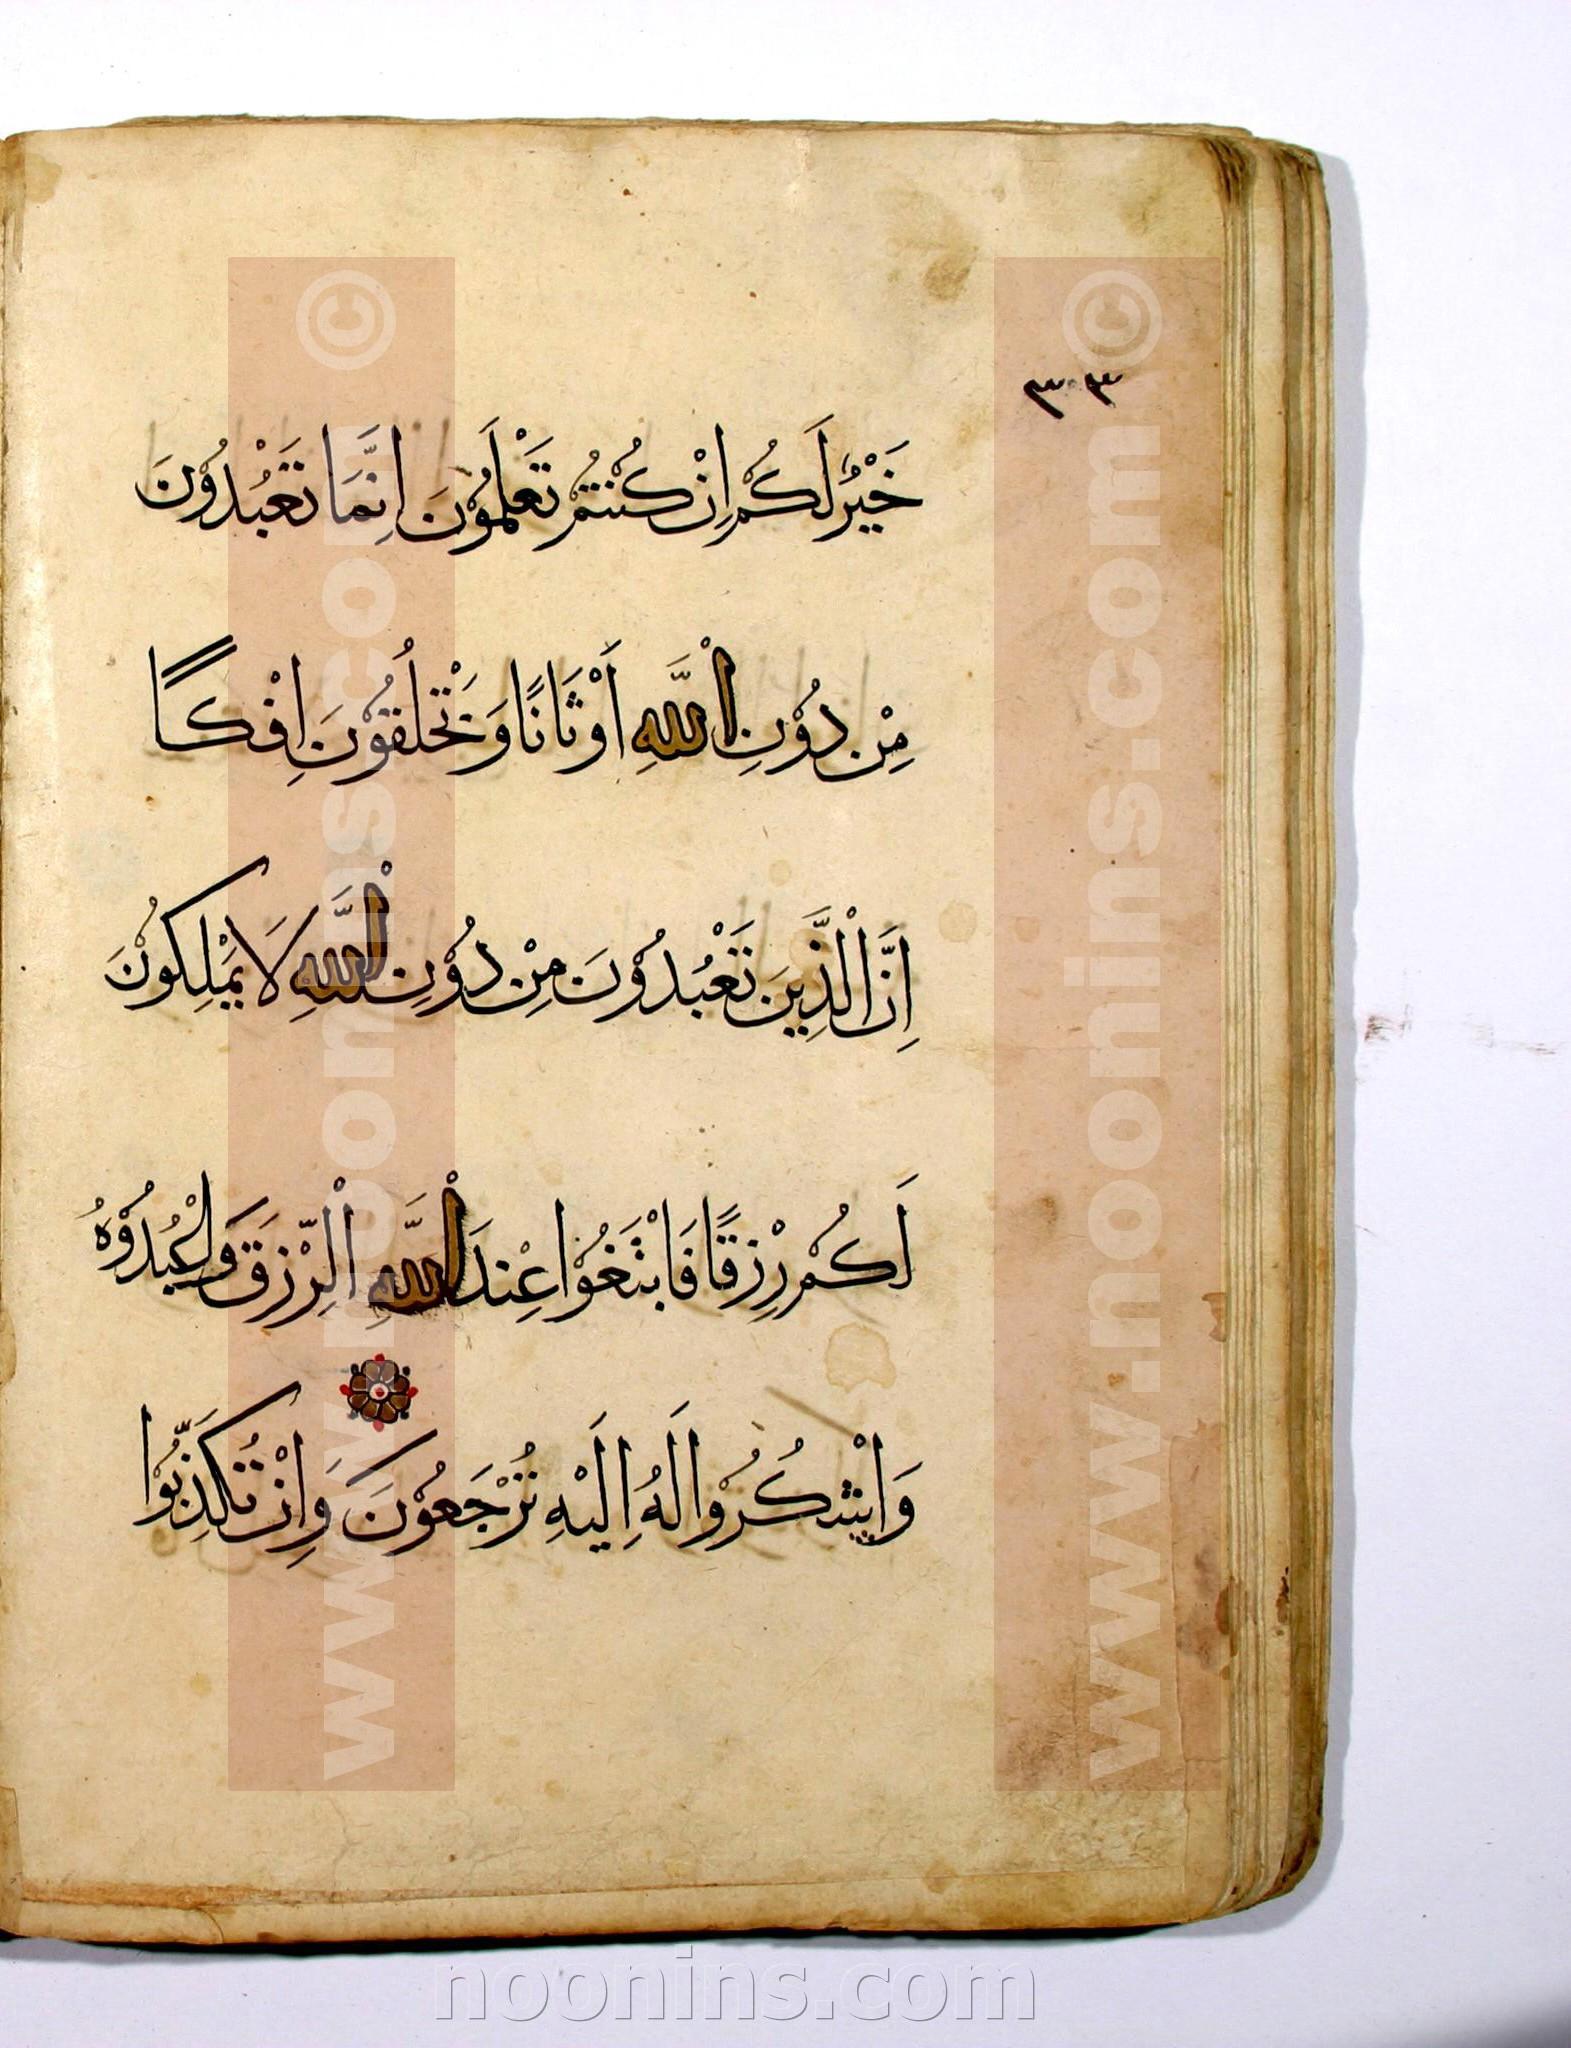 ٣٠٣
خَيْرٌ لَكُمْ اِنْ كُنْتُمْ تَعْلَمُوْنَ اِنَّمَا تَعْبُدُوْنَ
مِنْ دُوْنِ اللّٰهِ اَوْثَانًا وَتَخْلُقُوْنَ اِفْكًا
اِنَّ الَّذِيْنَ تَعْبُدُوْنَ مِنْ دُوْنِ اللّٰهِ لَا يَمْلِكُوْنَ
لَكُمْ رِزْقًا فَابْتَغُوْا عِنْدَ اللّٰهِ الرِّزْقَ وَاعْبُدُوْهُ
وَاشْكُرُوْا لَهُ اِلَيْهِ تُرْجَعُوْنَ وَاِنْ تُكَذِّبُوْا
www.noonins.com ©
www.noonins.com ©
noonins.com